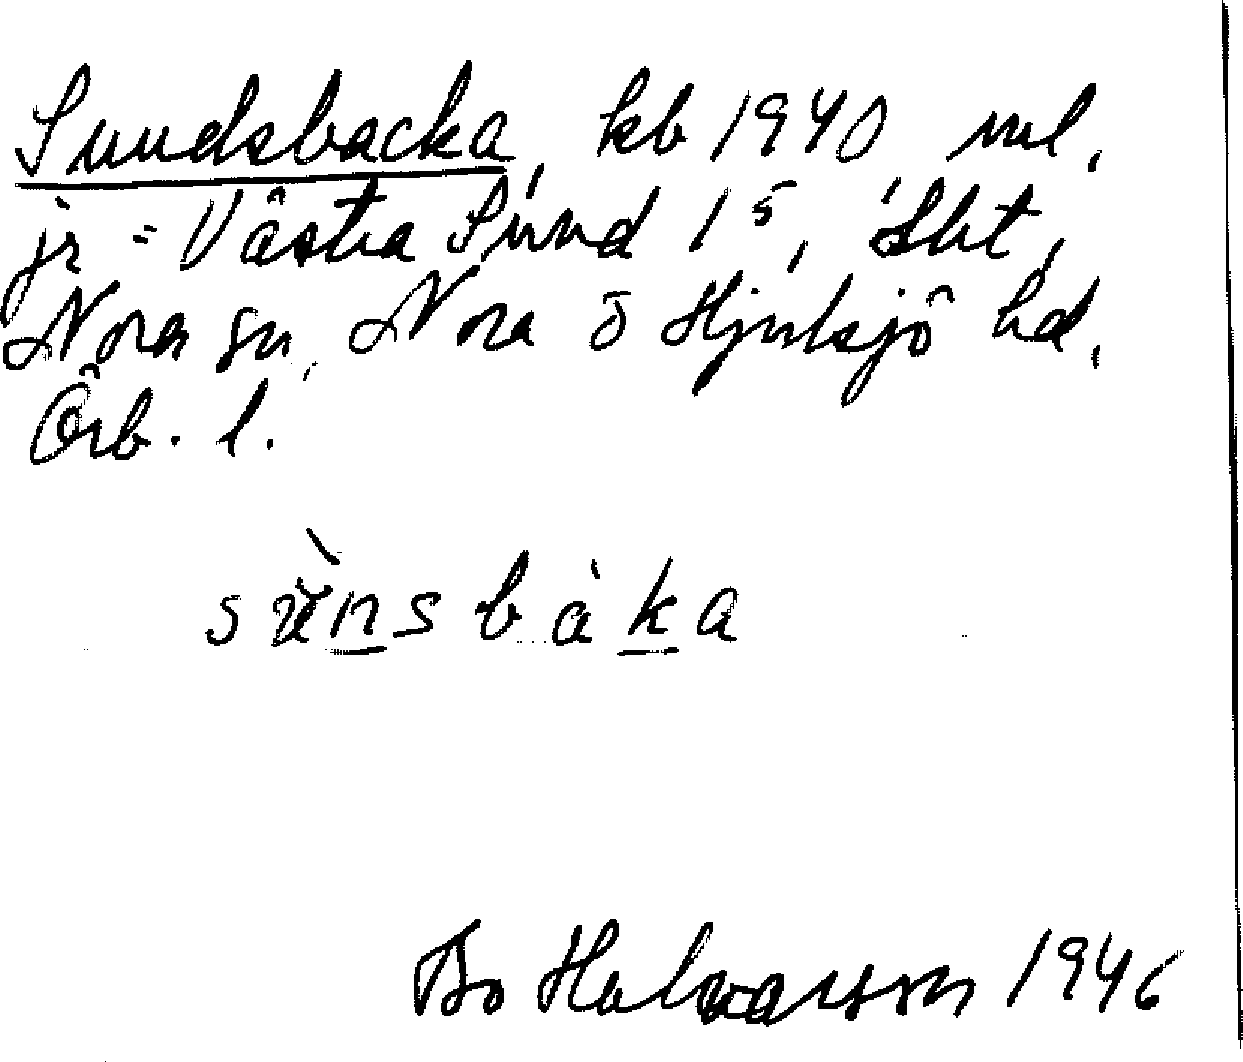 Sundsbacka, kb 1940 ml.
jr = Västra Sund 1⁵, Slut,
Nora sn, Nora o Hjulsjö hd.
Örb. l.
sùnsbàka
Bo Halvarsson 1946